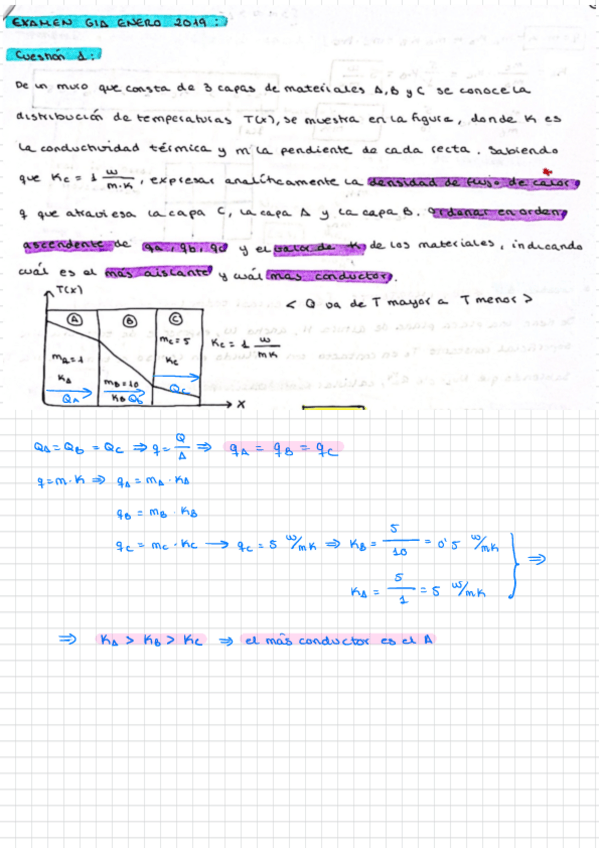 EXAMEN GIA ENERO 2019:
Cuestión 1:
De un muro que consta de 3 capas de materiales A, B y C se conoce la
distribución de temperaturas T(x), se muestra en la figura, donde K es
la conductividad térmica y m la pendiente de cada recta. Sabiendo
que Kc = 1 w/m·K, expresar analíticamente la densidad de flujo de calor,
q que atraviesa la capa C, la capa A y la capa B. Ordenar en orden
ascendente de qa, qb, qc y el valor de K, de los materiales, indicando
cuál es el más aislante y cuál más conductor.
T(x)
< Q va de T mayor a T menor >
A B C
mA=1 KA QA
mB=10 KB Qb
mc=5 Kc Qc
Kc = 1 w/mK
x
QA = QB = QC ⇒ q = Q/A ⇒ qA = qB = qC
q = m·K ⇒ qA = mA · KA
qB = mB · KB
qC = mC · KC → qC = 5 w/mK ⇒ KB = 5/10 = 0'5 w/mK
KA = 5/1 = 5 w/mK
⇒
⇒ KA > KB > KC ⇒ el más conductor es el A